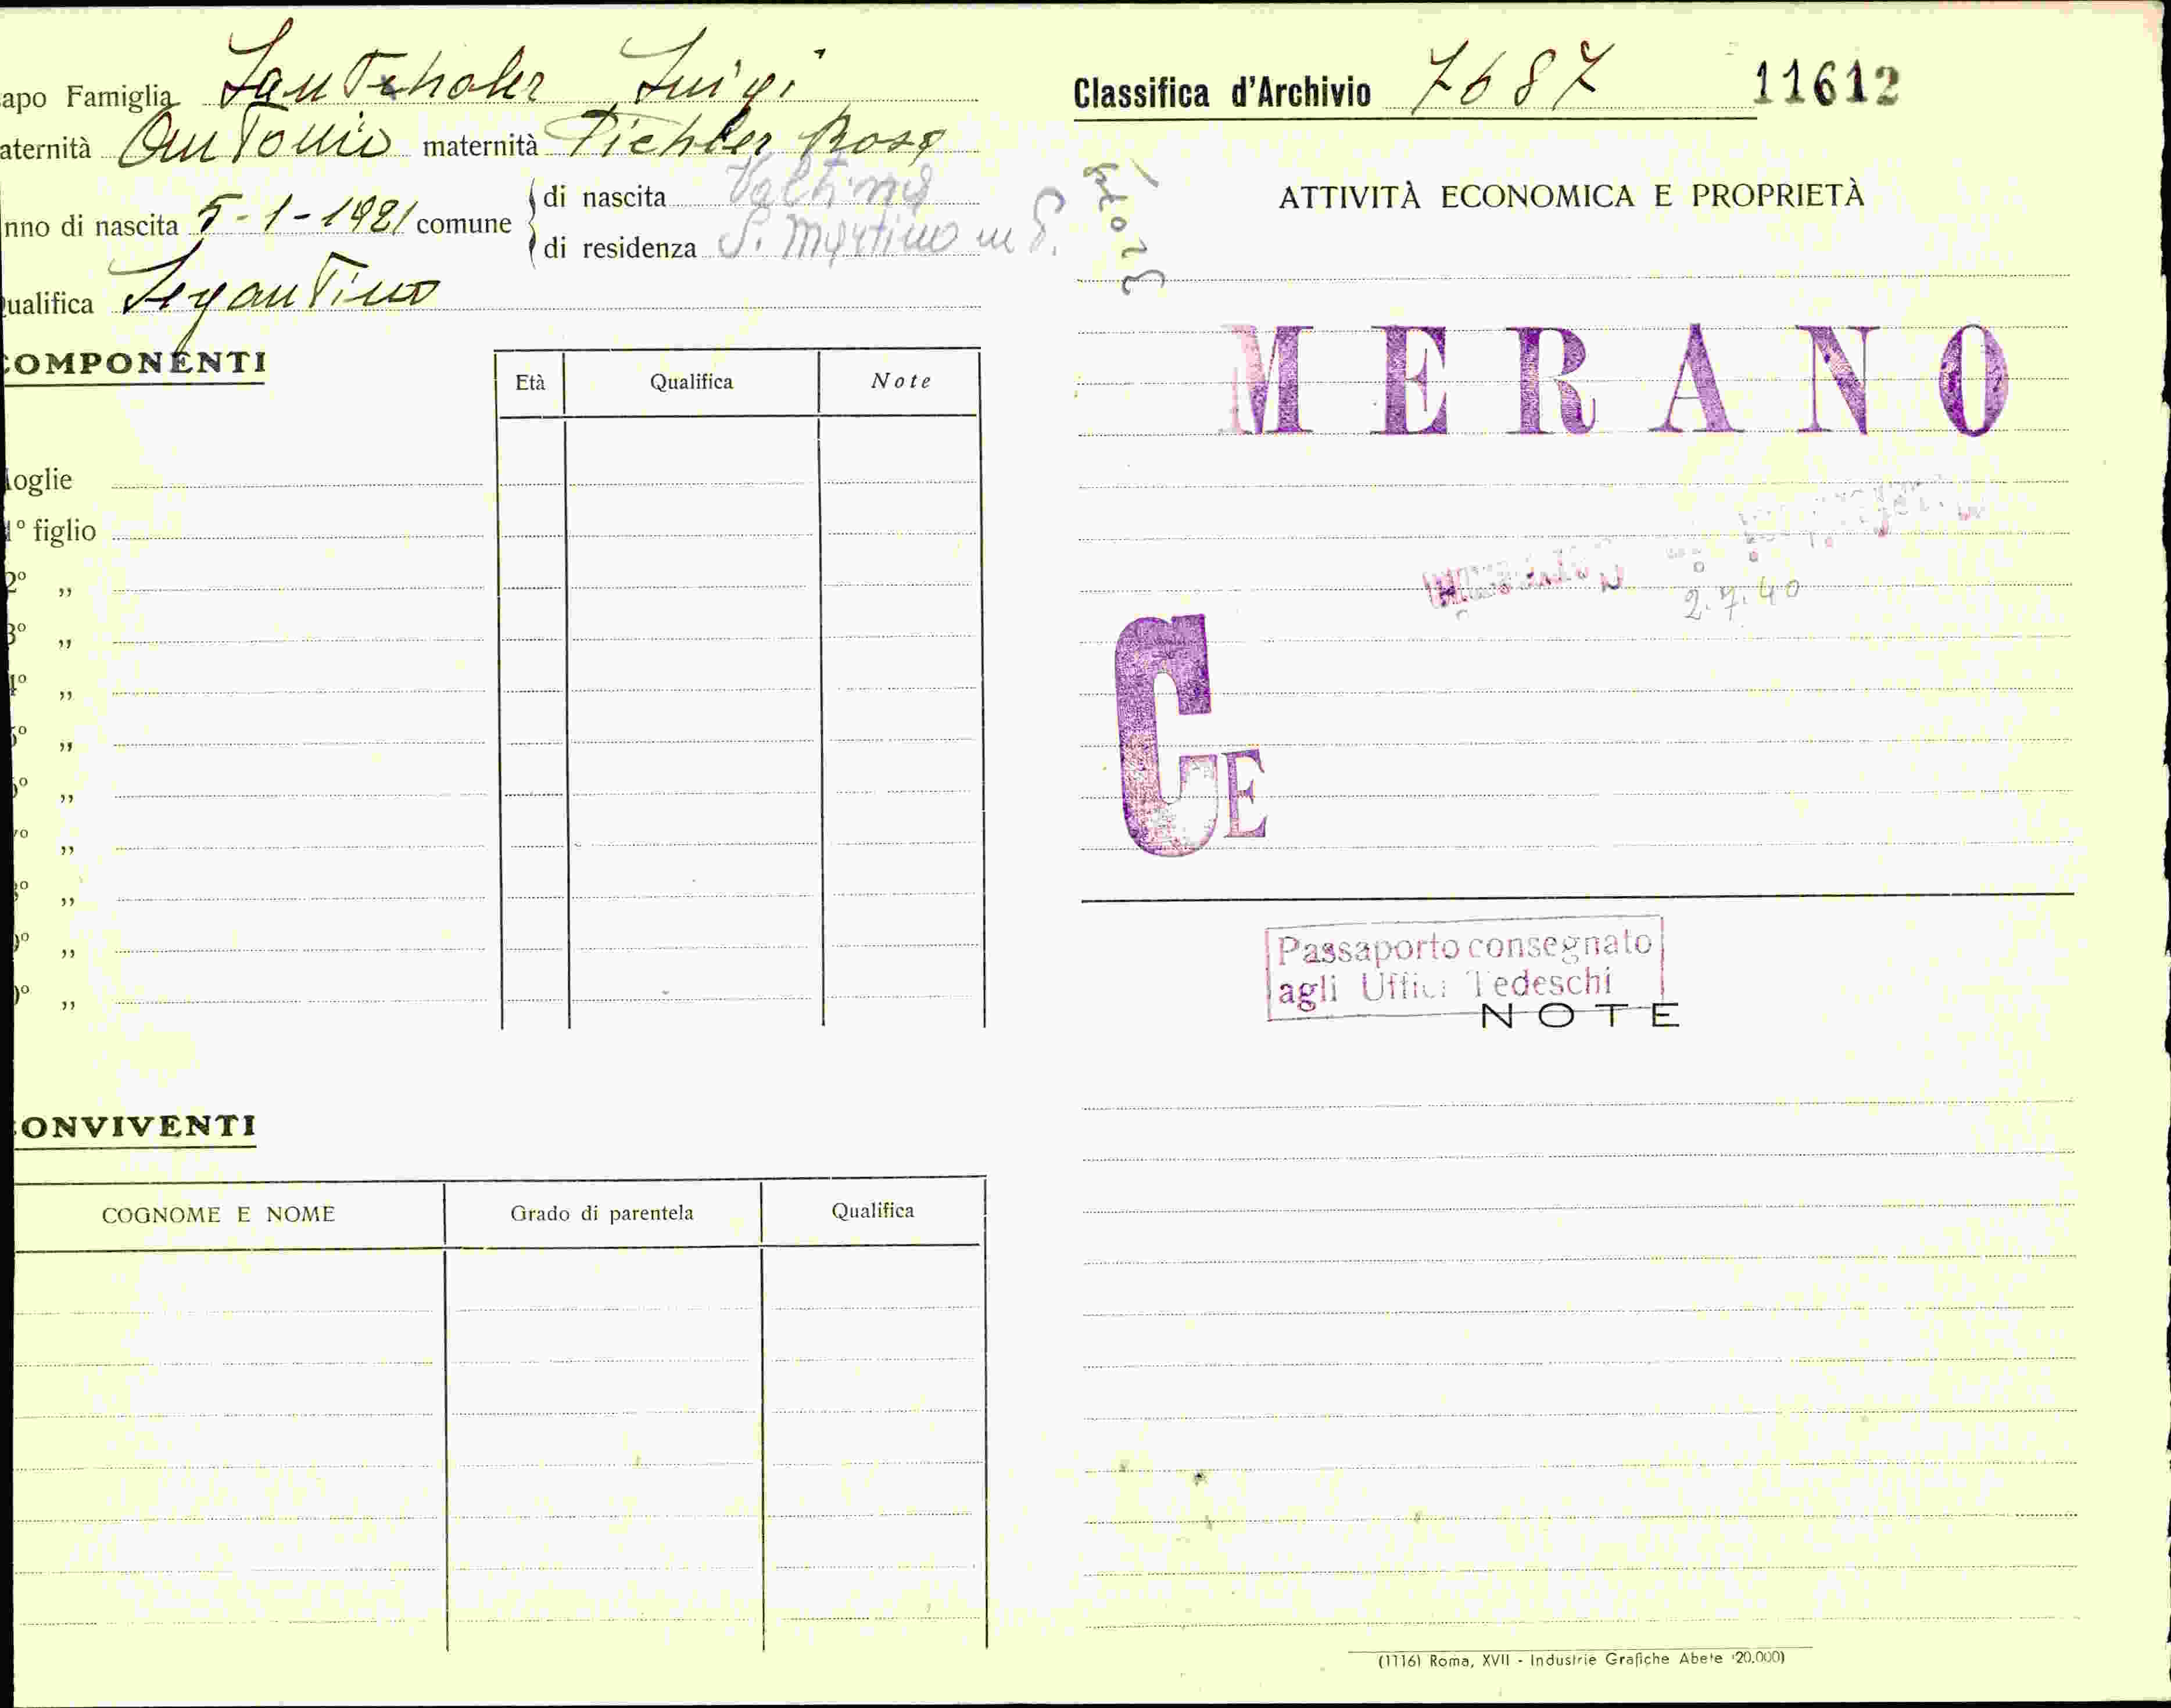 apo Famiglia Lautschaler Luigi
aternità Antonio maternità Pichler Rosa
nno di nascita 5-1-1921 comune di nascita Valtina
di residenza S. Martino in P.
ualifica Segantino
COMPONENTI
Età Qualifica Note
oglie
1° figlio
2° „
3° „
4° „
5° „
6° „
7° „
8° „
9° „
0° „
CONVIVENTI
COGNOME E NOME Grado di parentela Qualifica
Classifica d'Archivio 7687 11612
ATTIVITÀ ECONOMICA E PROPRIETÀ
MERANO
2.7.40
CE
Passaporto consegnato
agli Uffici Tedeschi
NOTE
(1116) Roma, XVII - Industrie Grafiche Abete (20.000)